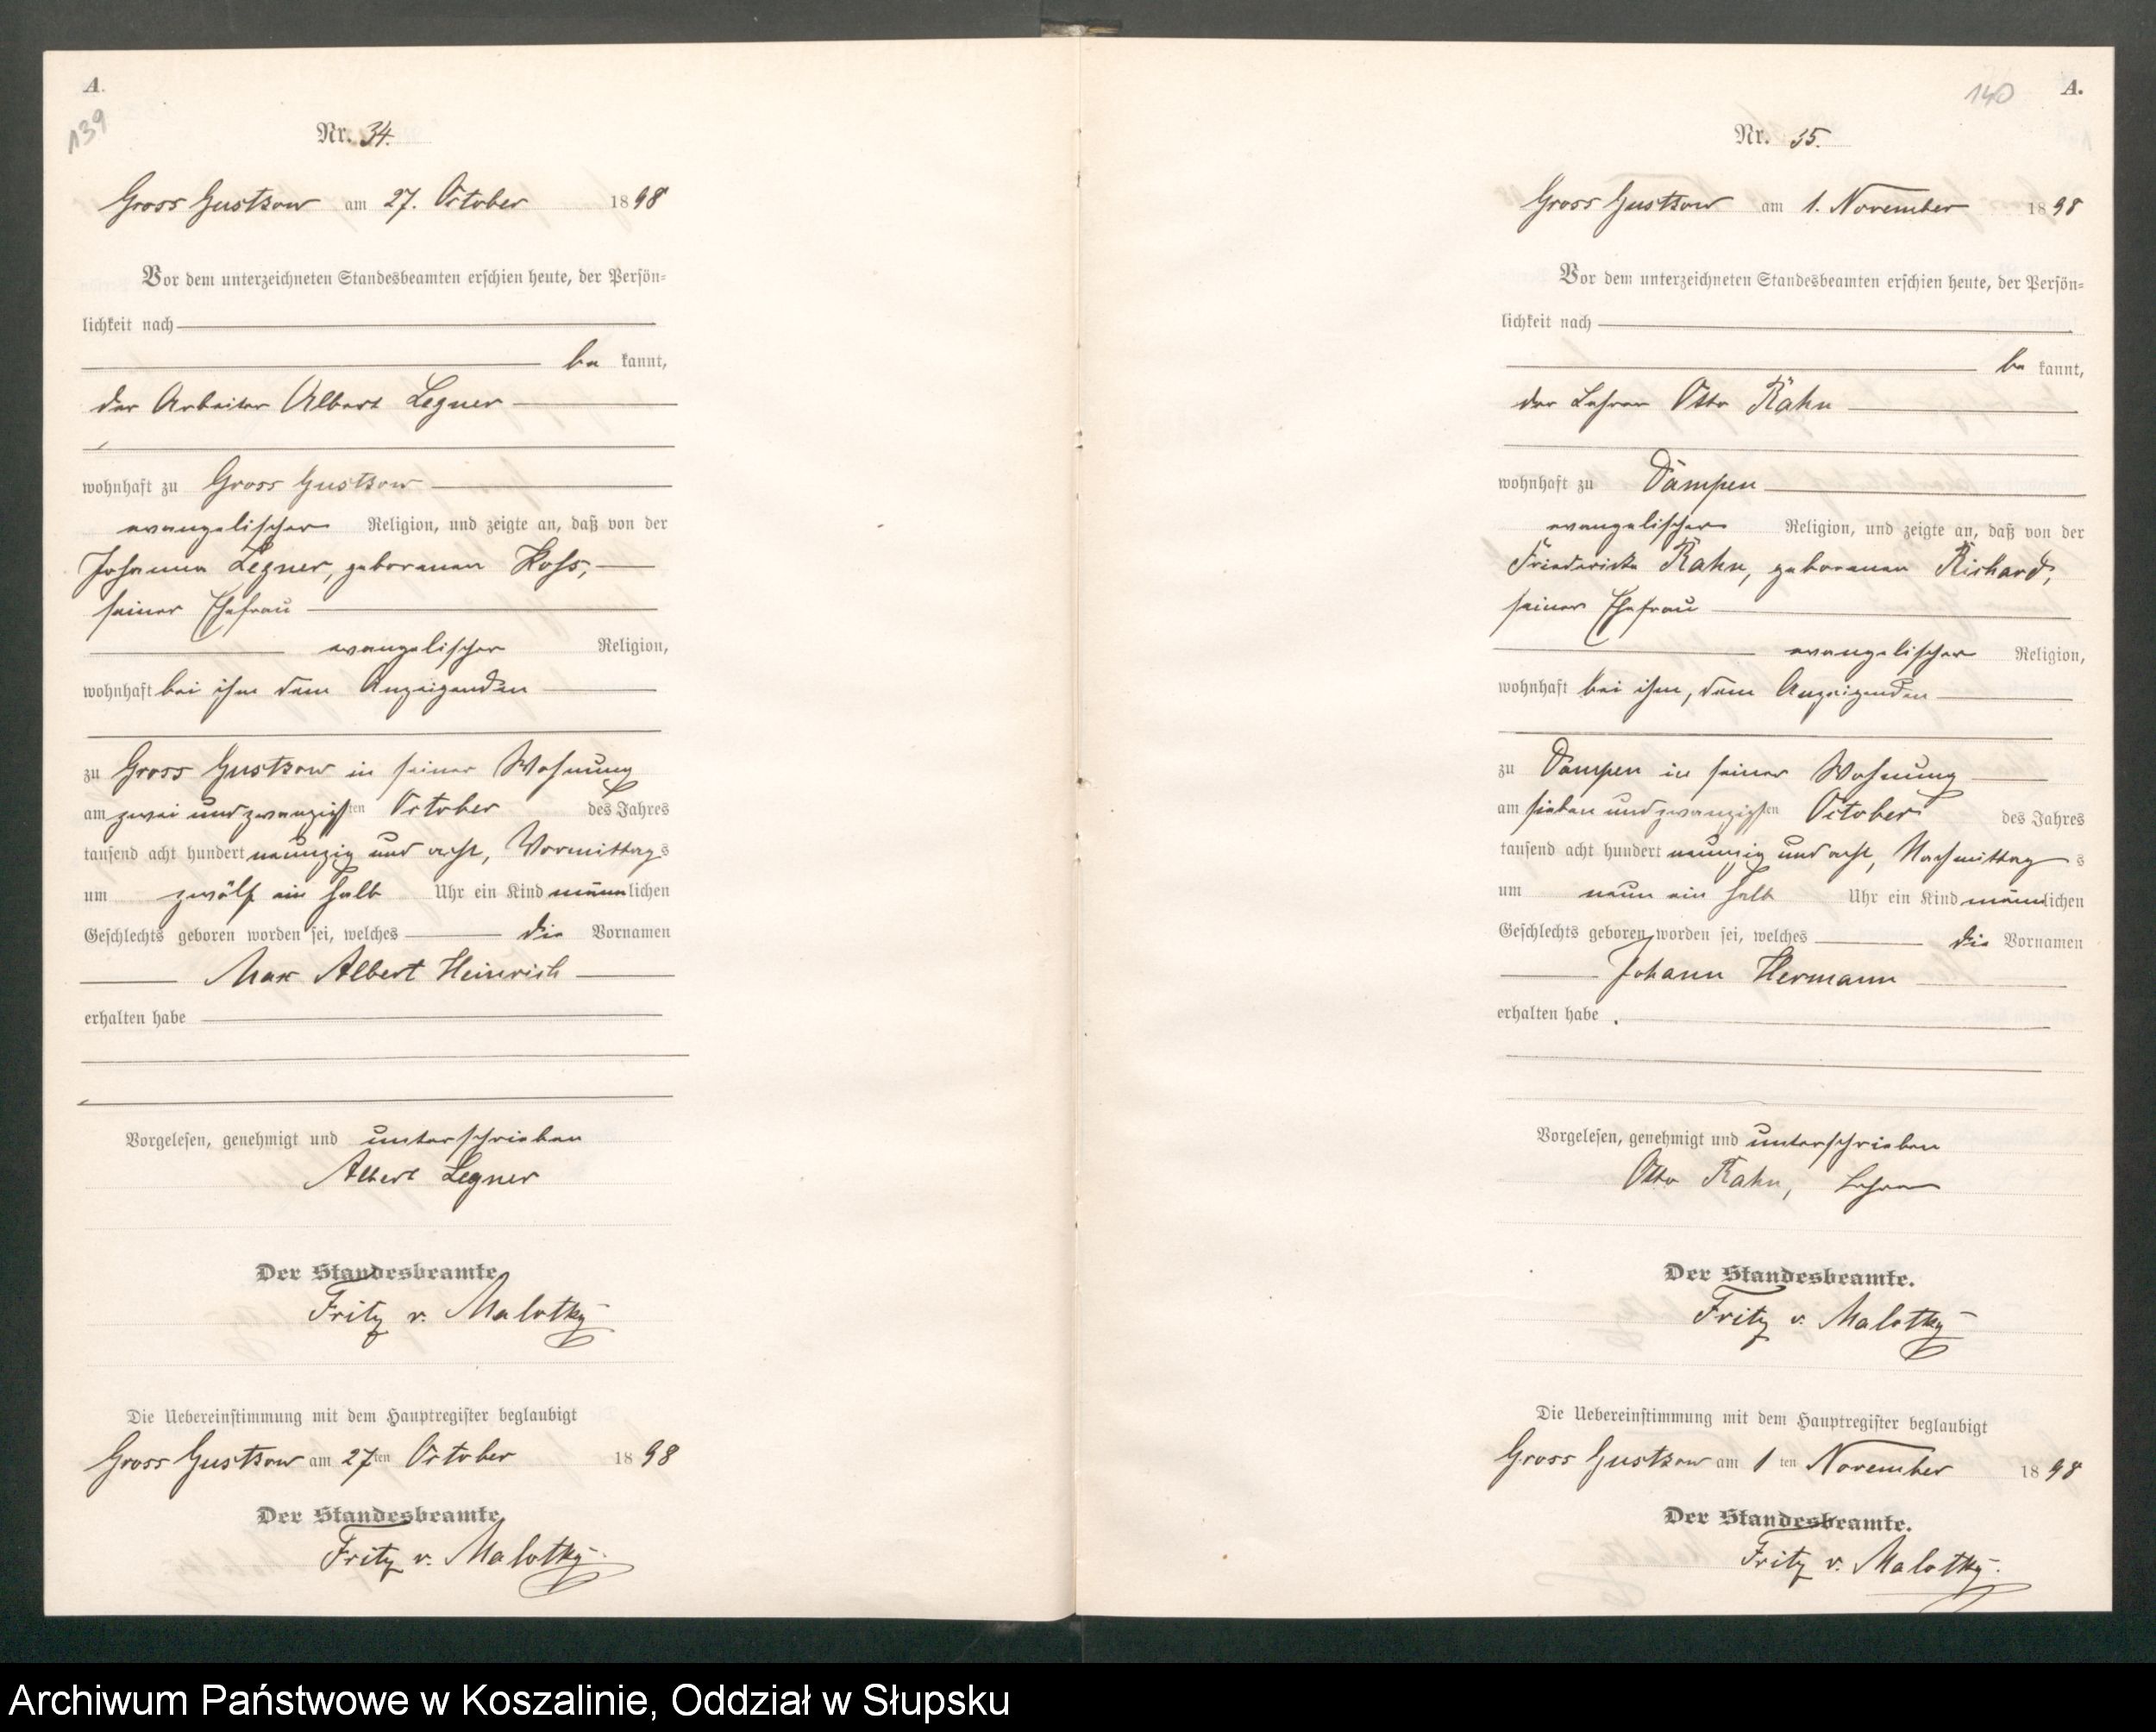 A.
139
Nr. 34.
Gross Gustkow am 27. October 1898
Vor dem unterzeichneten Standesbeamten erschien heute, der Persön-
lichkeit nach
be kannt,
der Arbeiter Albert Legner
wohnhaft zu Gross Gustkow
evangelischer Religion, und zeigte an, daß von der
Johanna Legner, geborenen Koss,
seiner Ehefrau
evangelischer Religion,
wohnhaft bei ihm dem Anzeigenden
zu Gross Gustkow in seiner Wohnung
am zwei und zwanzigsten October des Jahres
tausend acht hundert neunzig und acht, Vormittags
um zwölf ein halb Uhr ein Kind männlichen
Geschlechts geboren worden sei, welches die Vornamen
Max Albert Heinrich
erhalten habe
Vorgelesen, genehmigt und unterschrieben
Albert Legner
Der Standesbeamte.
Fritz v. Malotky
Die Uebereinstimmung mit dem Hauptregister beglaubigt
Gross Gustkow am 27ten October 1898
Der Standesbeamte.
Fritz v. Malotky.
140
A.
Nr. 35.
Gross Gustkow am 1. November 1898
Vor dem unterzeichneten Standesbeamten erschien heute, der Persön-
lichkeit nach
be kannt,
der Lehrer Otto Rahn
wohnhaft zu Dampen
evangelischer Religion, und zeigte an, daß von der
Friederike Rahn, geborenen Richard,
seiner Ehefrau
evangelischer Religion,
wohnhaft bei ihm, dem Anzeigenden
zu Dampen in seiner Wohnung
am sieben und zwanzigsten October des Jahres
tausend acht hundert neunzig und acht, Nachmittags
um neun ein halb Uhr ein Kind männlichen
Geschlechts geboren worden sei, welches die Vornamen
Johann Hermann
erhalten habe.
Vorgelesen, genehmigt und unterschrieben
Otto Rahn, Lehrer
Der Standesbeamte.
Fritz v. Malotky
Die Uebereinstimmung mit dem Hauptregister beglaubigt
Gross Gustkow am 1ten November 1898
Der Standesbeamte.
Fritz v. Malotky.
Archiwum Państwowe w Koszalinie, Oddział w Słupsku